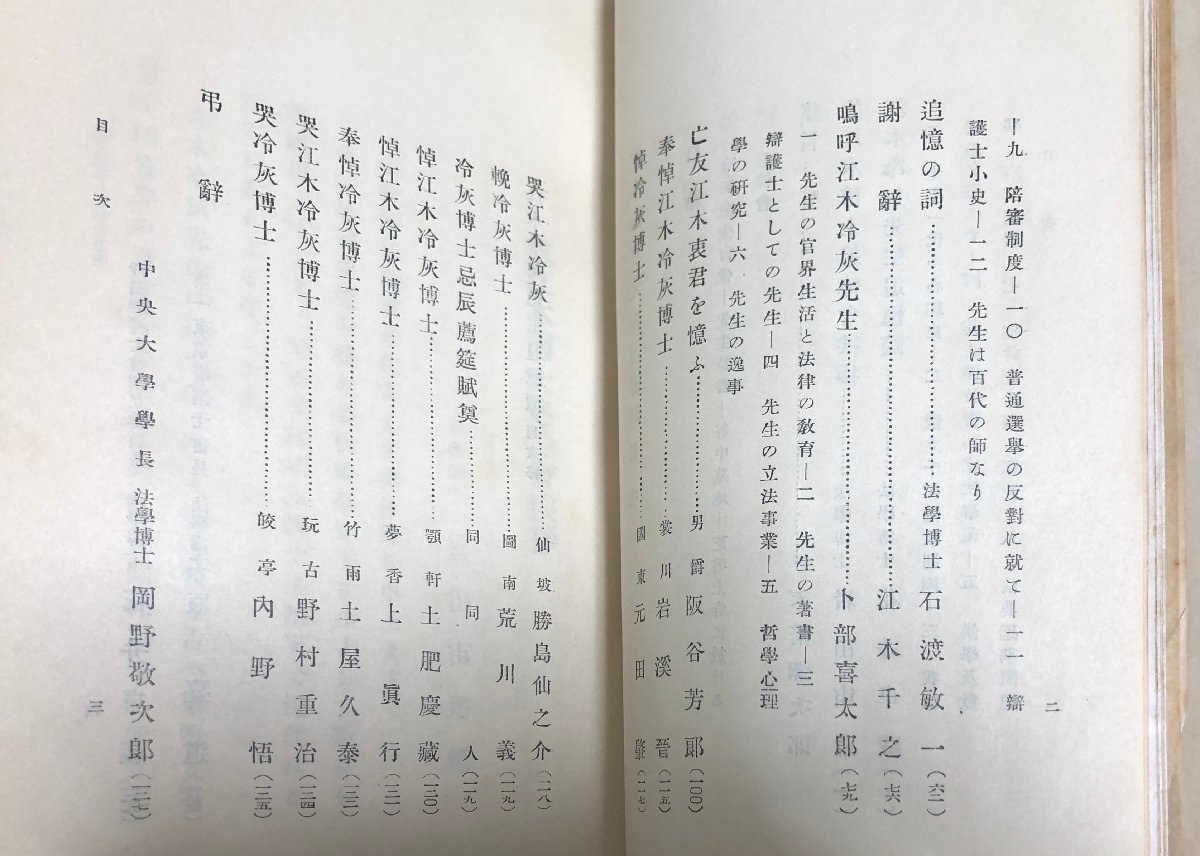 二
―九　陪審制度―一〇　普通選擧の反對に就て―一一　辯
護士小史―一二　先生は百代の師なり
追憶の詞………法學博士　石渡敏一（六二）
謝辭………江木千之（七六）
嗚呼江木冷灰先生………卜部喜太郎（七九）
一　先生の官界生活と法律の敎育―二　先生の著書―三
辯護士としての先生―四　先生の立法事業―五　哲學心理
學の硏究―六　先生の逸事
亡友江木衷君を憶ふ………男爵　阪谷芳郞（一〇〇）
奉悼江木冷灰博士………裳川　岩溪晉（一一五）
悼冷灰博士………國東　元田肇（一一七）
哭江木冷灰………仙坡　勝島仙之介（一一八）
輓冷灰博士………圖南　荒川義（一一九）
冷灰博士忌辰薦筵賦奠………同　同人（一一九）
悼江木冷灰博士………顎軒　土肥慶藏（一三〇）
悼江木冷灰博士………夢香　上眞行（一三一）
奉悼冷灰博士………竹雨　土屋久泰（一三三）
哭江木冷灰博士………玩古　野村重治（一三四）
哭冷灰博士………皎亭　內野悟（一三五）
弔辭
中央大學學長　法學博士　岡野敬次郞（一三七）
目次
三